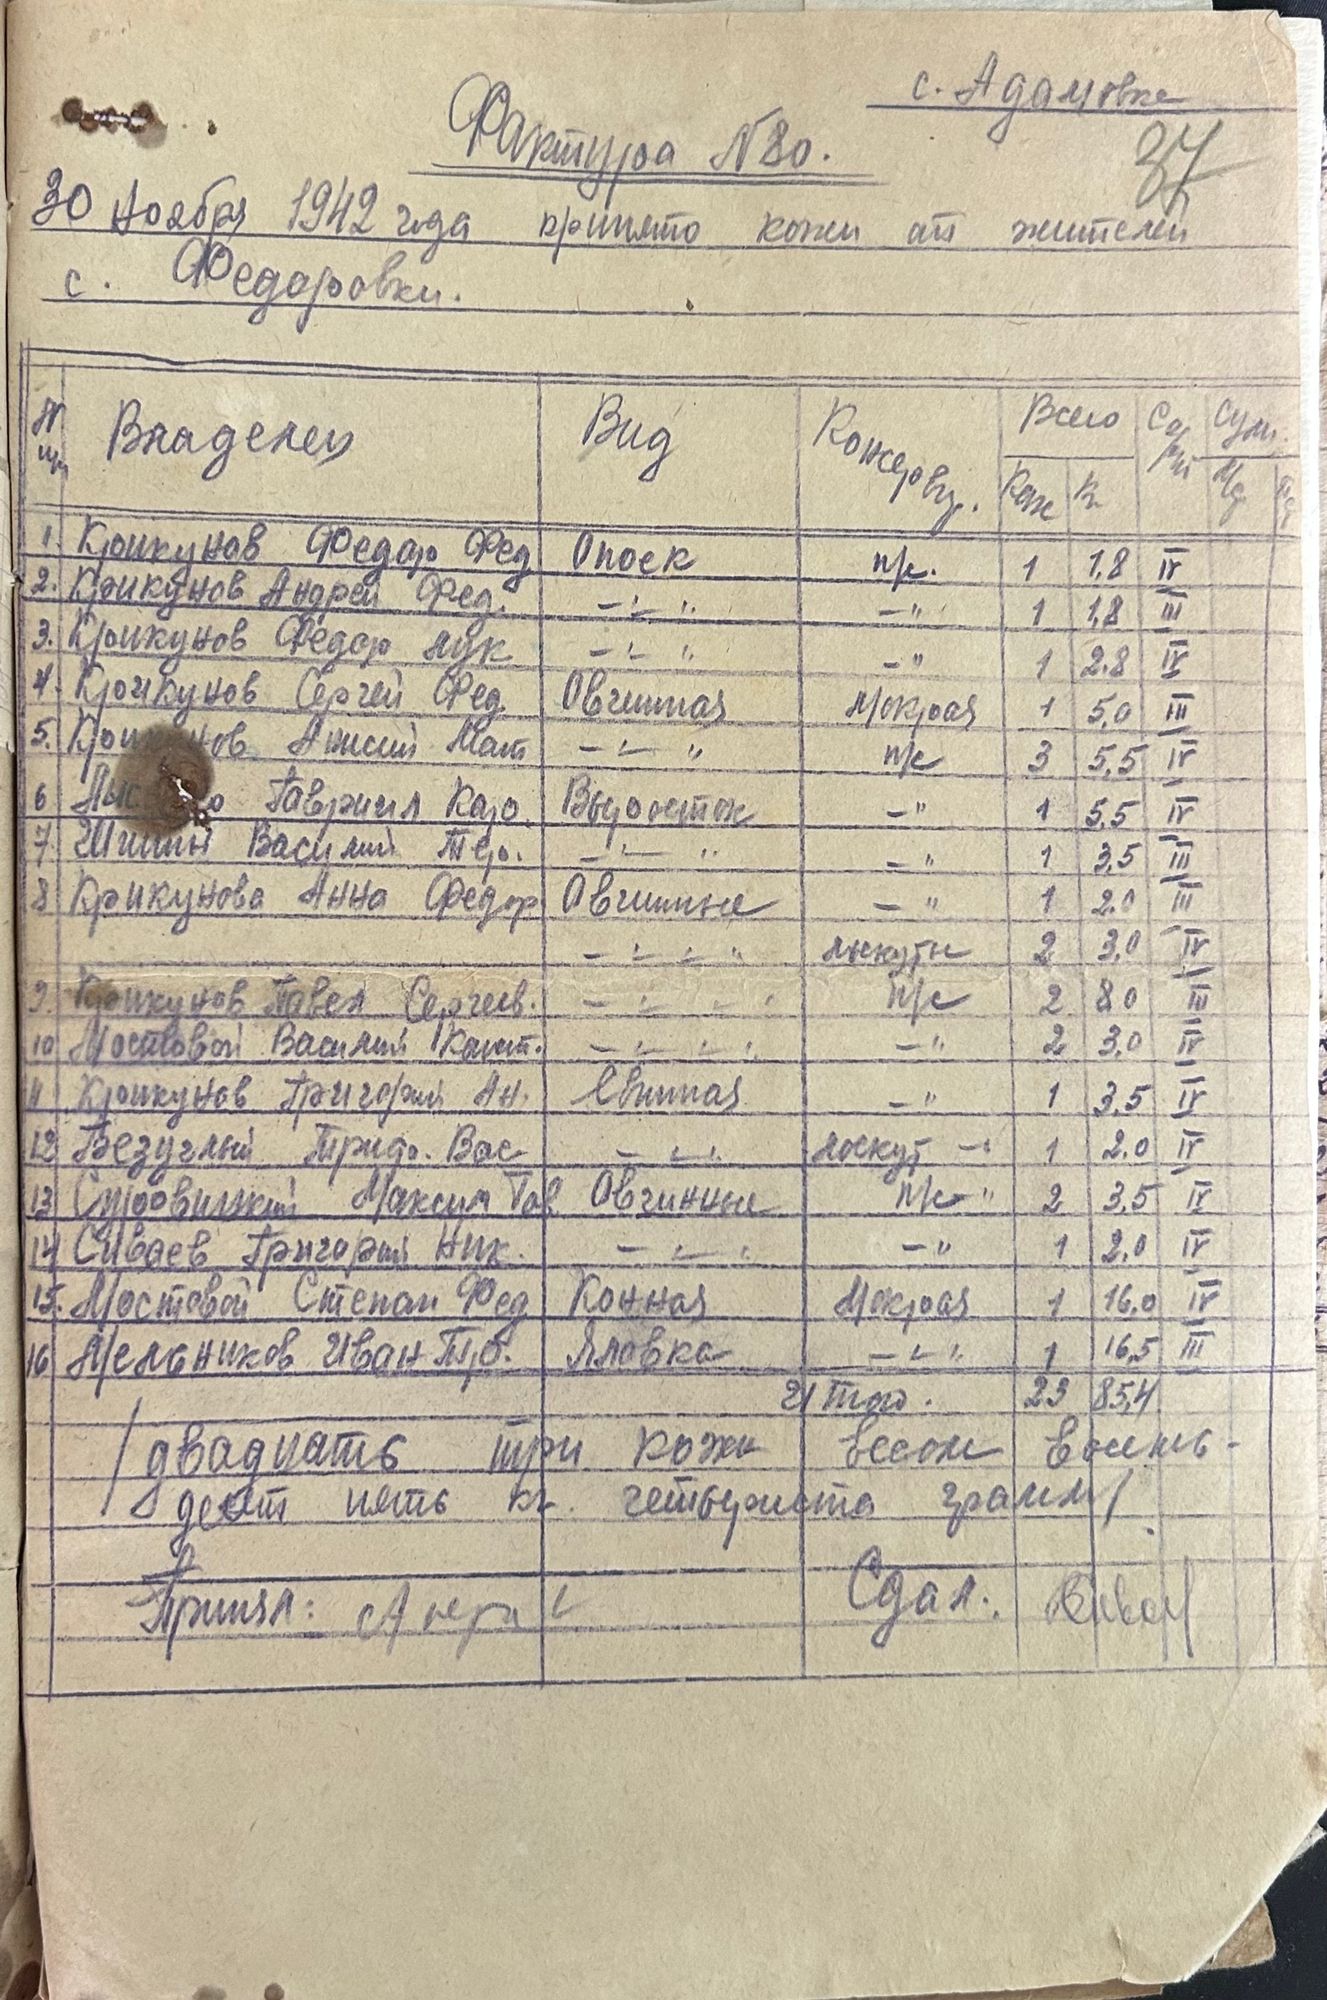 с. Адамовка
Фактура N 80.
37
30 ноября 1942 года принято кожи от жителей
с. Федоровки.
№ пп Владелец Вид Консервир. Всего Сорт Сум.
Кож Кг
1. Крикунов Федор Фед Опоек п/с. 1 1,8 IV
2. Крикунов Андрей Фед. -"-" -" 1 1,8 III
3. Крикунов Федор Лук -"-" -" 1 2.8 IV
4. Крикунов Сергей Фед. Овчинная Мокрая 1 5,0 III
5. Анисий Мат -"-" п/с 3 5,5 IV
6 Гавриил Выросток -" 1 5,5 IV
7. Василий -"-" -" 1 3,5 III
8 Крикунова Анна Федор Овчинные -" 1 2.0 III
-"-"-" лоскуты 2 3,0 IV
9. Крикунов Павел Сергеев. -"-"-" п/с 2 8.0 III
10 Мостовой Василий Конст. -"-"-" -" 2 3,0 IV
11 Крикунов Григорий Ан. -" 1 3,5 IV
12 Безуглый Триф. Вас -"-" лоскут -" 1 2.0 IV
13 Максим Гав Овчинные п/с-" 2 3,5 IV
14 Сиваев Григорий Ник. -"-" -" 1 2.0 IV
15. Мостовой Степан Фед Конная Мокрая 1 16,0 IV
16 Мельников Иван Яловка -"-" 1 16,5 III
Итого. 23 85,4
/двадцать три кожи весом восемь-
десят пять кг. четыреста грамм/
Принял: Сдал: